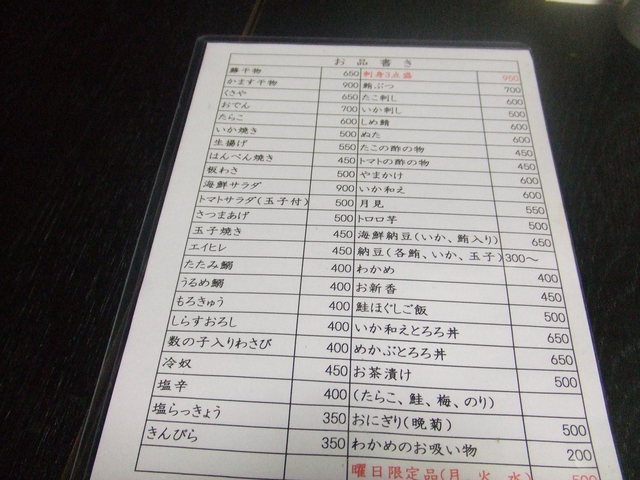 お品書き
鯵干物 650 刺身3点盛 950
かます干物 900 鮪ぶつ 700
くさや 650 たこ刺し 600
おでん 700 いか刺し 600
たらこ 600 しめ鯖 600
いか焼き 500 ぬた 500
生揚げ 550 たこの酢の物 450
はんぺん焼き 450 トマトの酢の物 450
板わさ 500 やまかけ 600
海鮮サラダ 900 いか和え 600
トマトサラダ(玉子付) 500 月見 550
さつまあげ 500 トロロ芋 500
玉子焼き 450 海鮮納豆(いか、鮪入り) 650
エイヒレ 450 納豆(各鮪、いか、玉子) 300〜
たたみ鰯 400 わかめ 400
うるめ鰯 400 お新香 450
もろきゅう 400 鮭ほぐしご飯 500
しらすおろし 400 いか和えとろろ丼 650
数の子入りわさび 400 めかぶとろろ丼 650
冷奴 450 お茶漬け 500
塩辛 400 (たらこ、鮭、梅、のり)
塩らっきょう 350 おにぎり(晩菊) 500
きんぴら 350 わかめのお吸い物 200
曜日限定品(月、火、水) 500